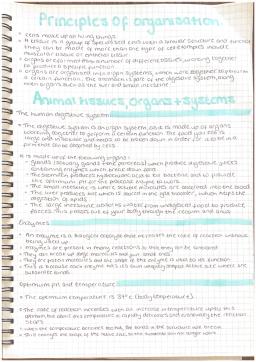 Principles of organisation
• cells make up all living things.
• A tissue is a group of specialised cells with a similar structure and function
they can be made of more than one type of cell examples include
muscular tissue or epithelial tissue
• organs are formed from a number of different tissues, working together
to produce a specific function
• organs are organised into organ systems, which work together to perform
a certain function. The stomach is part of the digestive system, along
with organs such as the liver and small intestine
Animal tissues, organs + systems
The human digestive system
• The digestive system is an organ system, as it is made up of organs
working together to perform a certain function. The food you eat is
large and insoluble and needs to be broken down in order for it to be
absorbed by cells
It is made up of the following organs:
- glands (salivary glands and pancreas) which produce digestive juices
containing enzymes which break down
- The stomach produces hydrochloric acid to kill bacteria and to provide
the optimum pH for the protease enzyme to work
- The small intestine is where soluble molecules are absorbed into the blood
- The liver produces bile which is stored in the gall bladder, which helps the
digestion of lipids
- The large intestine absorbs water from undigested food to produce
faeces. This passes out of your body through the rectum and anus
Enzymes
• An enzyme is a biological catalyst that increases the rate of reaction without
being used up
• Enzymes are present in many reactions so that they can be controlled
• They can break up large molecules and join small ones
• They are protein molecules and the shape of the enzyme is vital to its function
• This is because each enzyme has its own uniquely shaped active site where the
substrate binds
Optimum pH and temperature
• The optimum temperature is 37°C (body temperature)
• The rate of reaction increases with an increase in temperature up to this
optimum, but above this temperature it rapidly decreases and eventually the reaction
stops
• When the temperature becomes too hot, the bonds in the structure will break
• This changes the shape of the active site, so the substrate can no longer